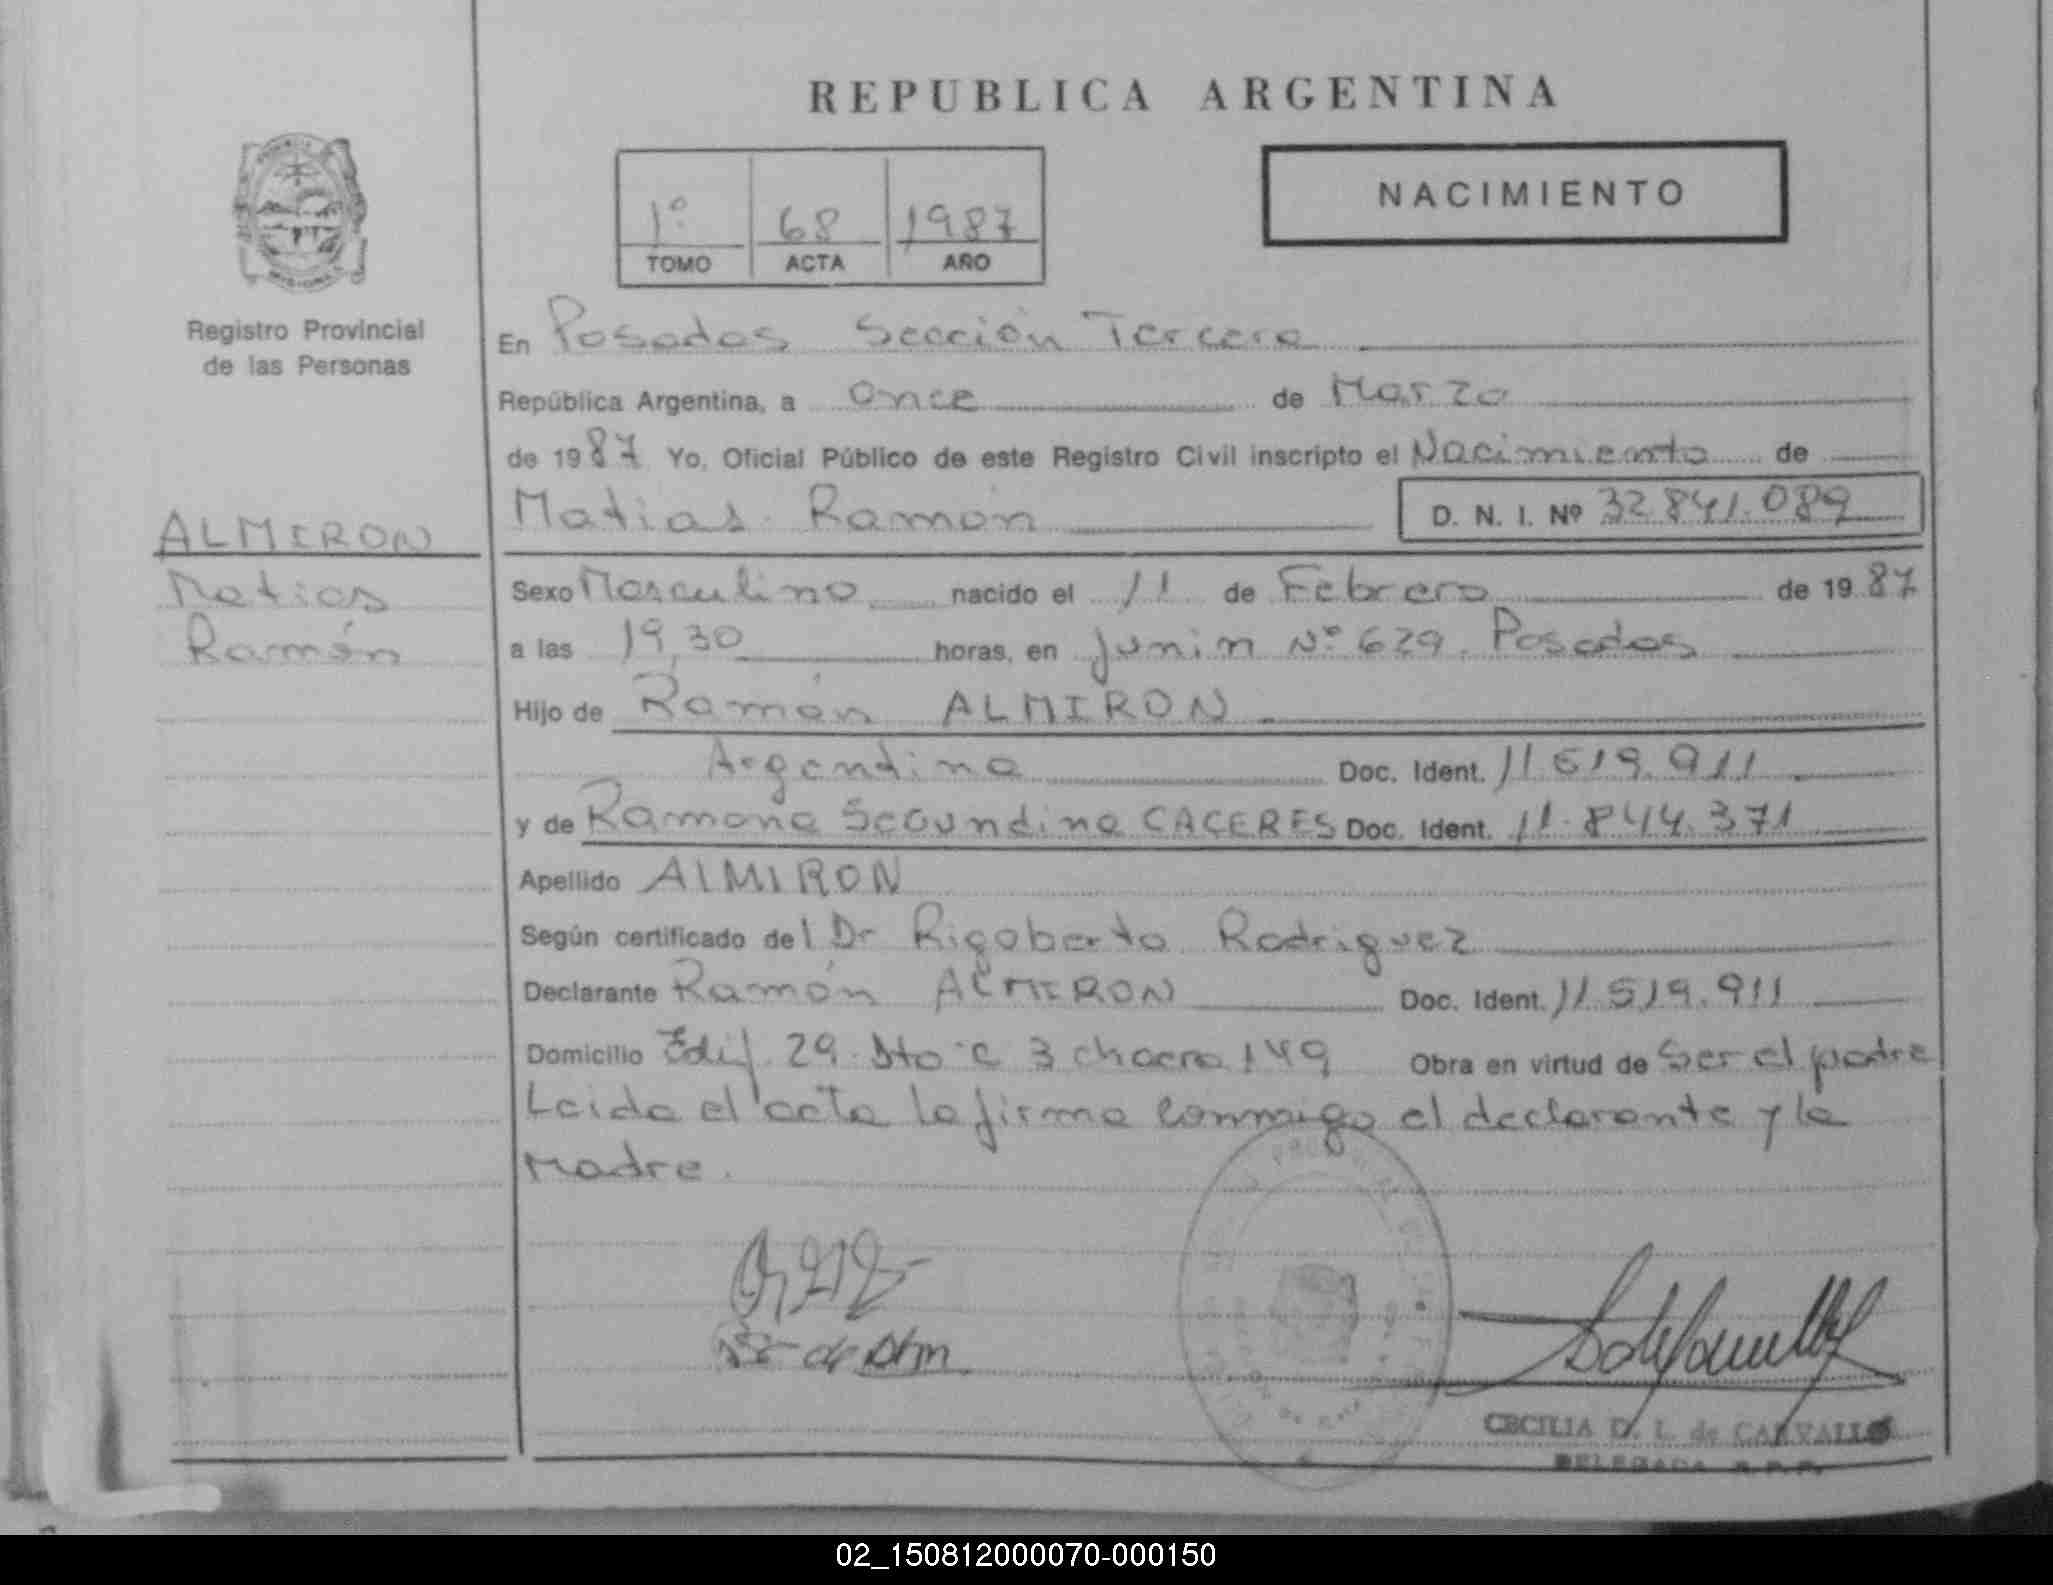 REPUBLICA ARGENTINA
NACIMIENTO
1º 68 1987
TOMO ACTA AÑO
Registro Provincial
de las Personas
En Posadas Sección Tercera
República Argentina, a once de Marzo
de 1987 Yo, Oficial Público de este Registro Civil inscripto el Nacimiento de
Matias Ramón D. N. I. Nº 32.841.089
ALMIRON
Matias
Ramón
Sexo Masculino nacido el 11 de Febrero de 1987
a las 19,30 horas, en Junin Nº 629. Posadas
Hijo de Ramón ALMIRON
Argentina Doc. Ident. 11.519.911
y de Ramona Secundina CACERES Doc. Ident. 11.844.371
Apellido AlMIRON
Según certificado del Dr Rigoberto Rodriguez
Declarante Ramón ALMIRON Doc. Ident. 11.519.911
Domicilio Edif. 29 Dto C 3 chacra 149 Obra en virtud de Ser el padre
Leida el acta la firma conmigo el declarante y la
Madre.
de Alm
CECILIA D. L. de CARVALLO
DELEGADA R.P.P.
02_150812000070-000150